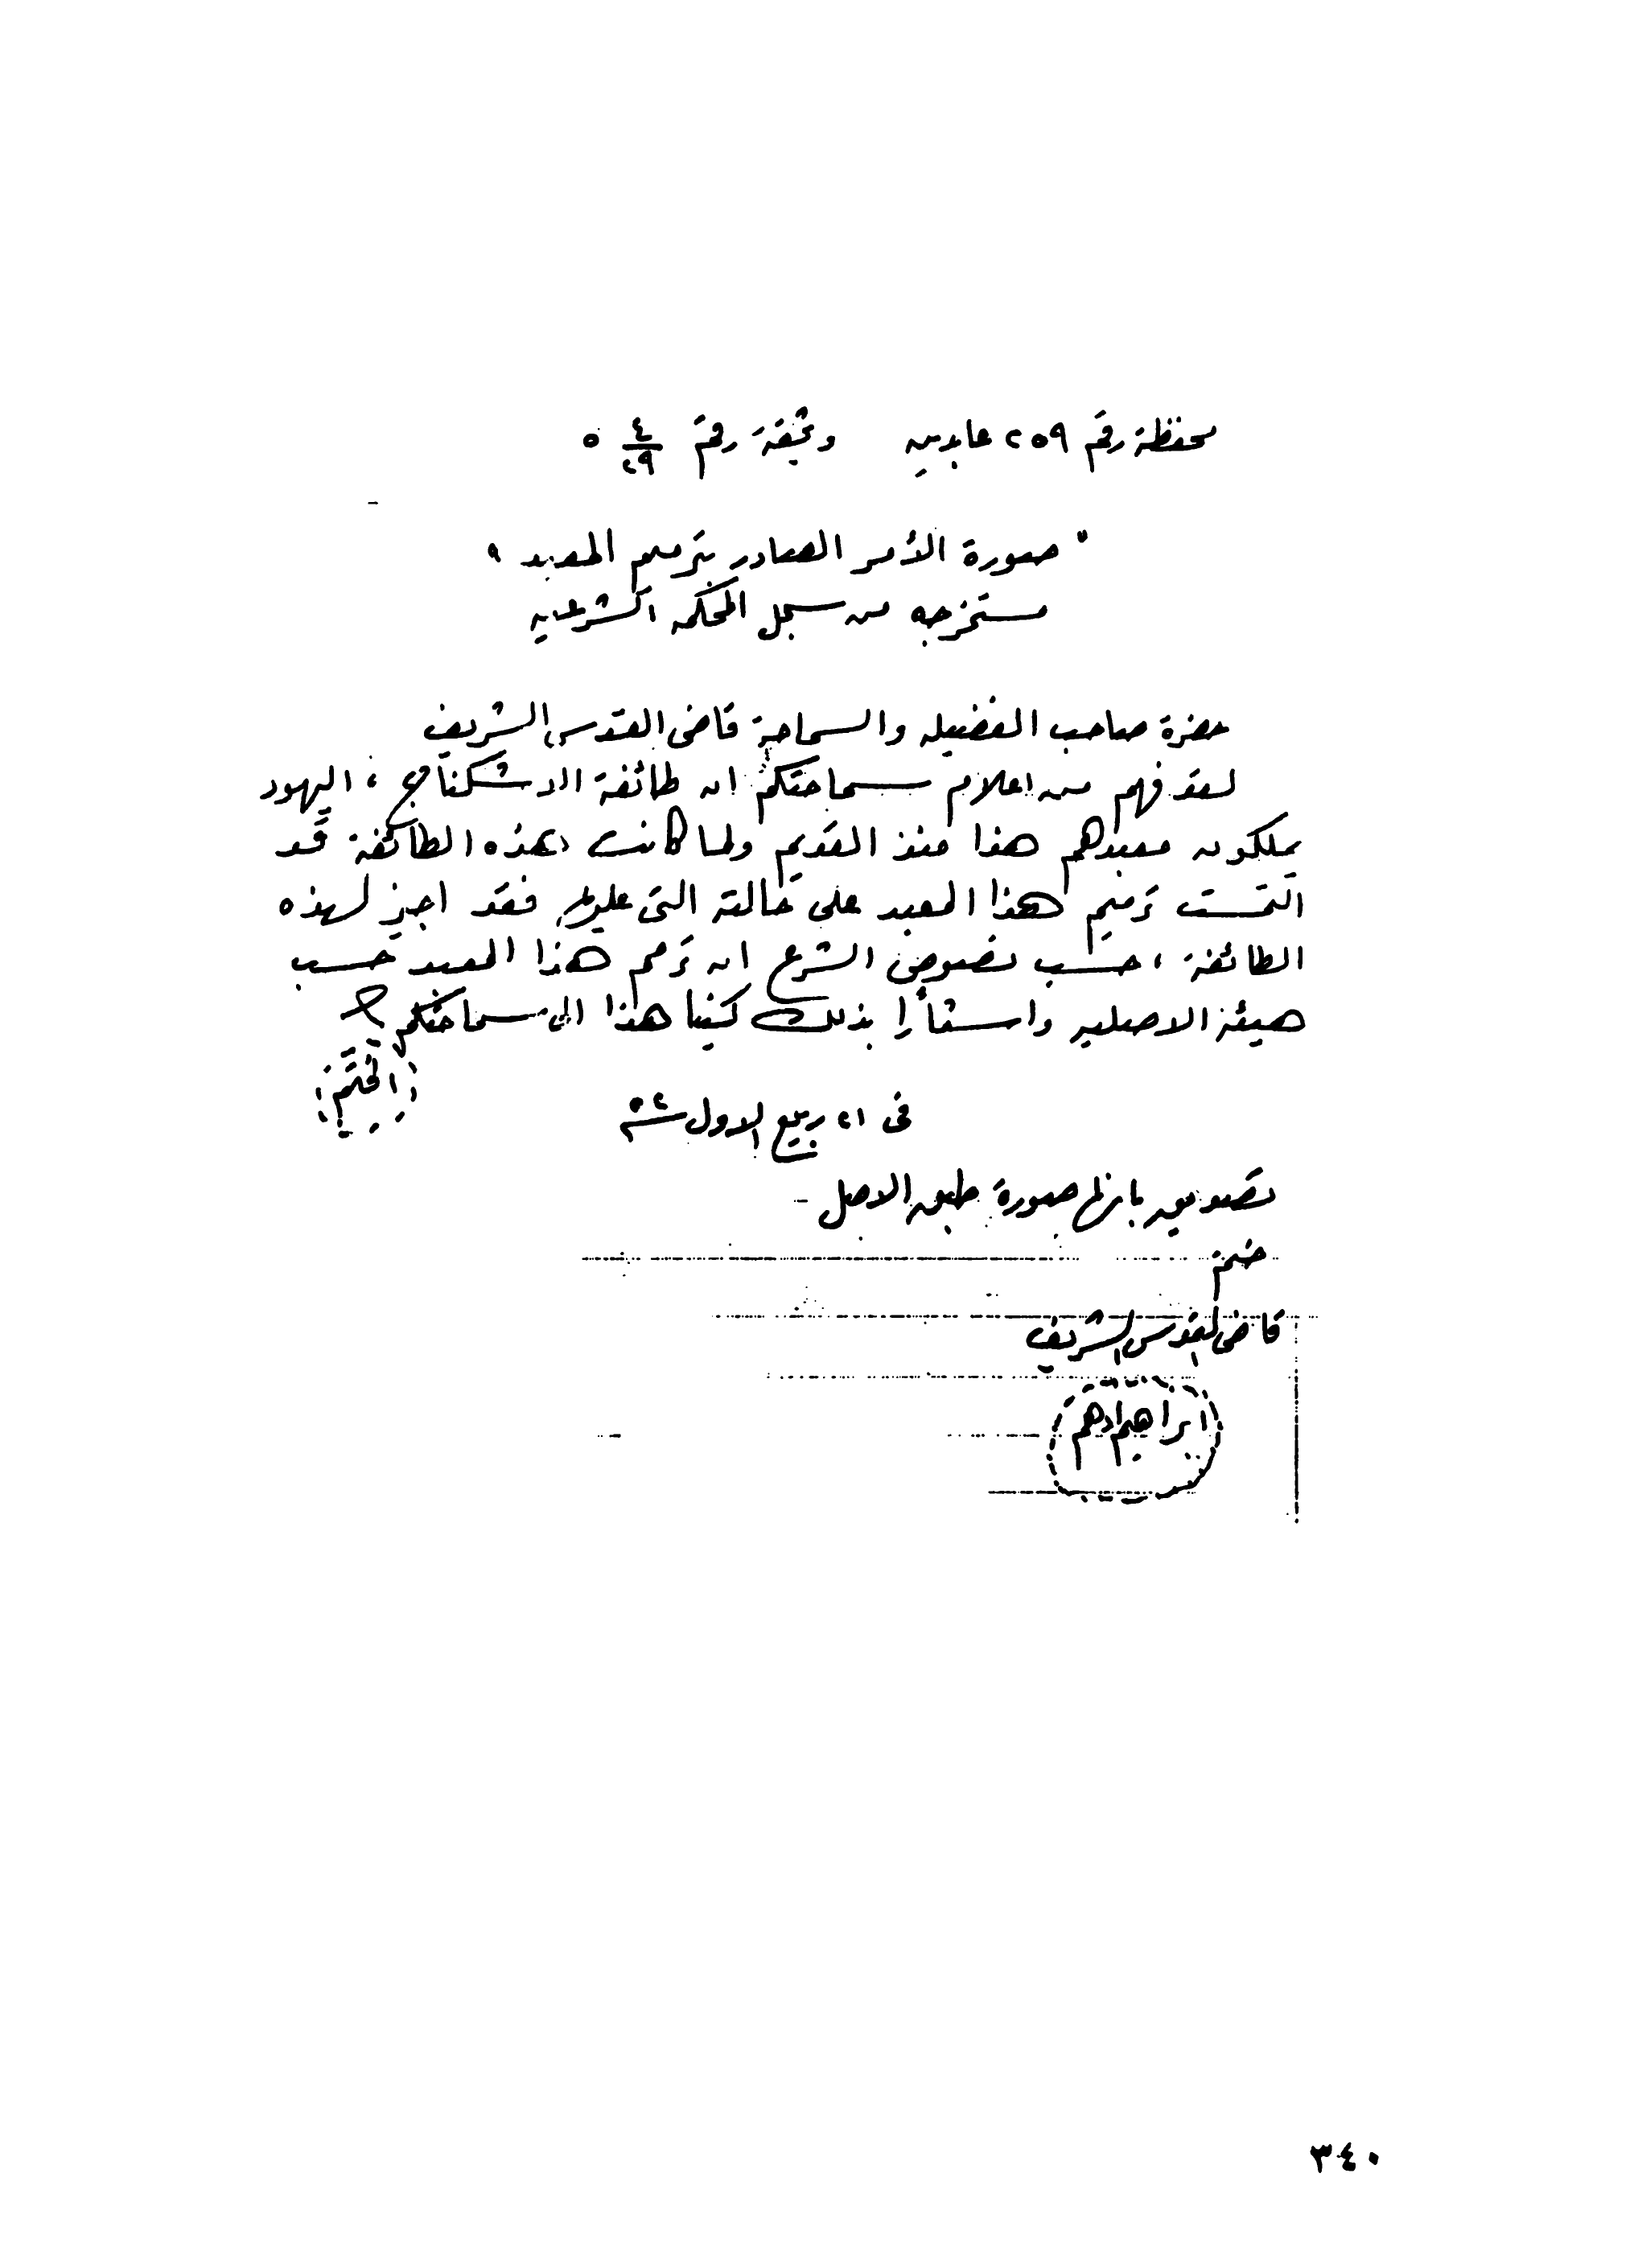 محفظة رقم ٢٥٩ عابدين وثيقة رقم ٤/٢٩ ٥
" صورة الأمر الصادر بترميم المعبد "
مستخرجه من سجل المحكمه الشرعيه
حضرة صاحب الفضيله والسماحة قاضى القدس الشريف
لقد فهم من اعلام سماحتكم ان طائفة الاشكناج، اليهود
يملكون معبدهم هذا منذ القديم ولما كانت هذه الطائفة قد
التمست ترميم هذا المعبد على حالته التى عليها فقد اجيز لهذه
الطائفة، حسب نصوص الشرع ان ترمم هذا المعبد حسب
هيئته الاصليه بذلك كتبنا هذا الى سماحتكم
الختم
فى ٢١ ربيع الاول سنة ٥٢
تصديق بانها صورة طبق الاصل -
ختم
قاضى القدس الشريف
ابراهيم ادهم
٣٤٠